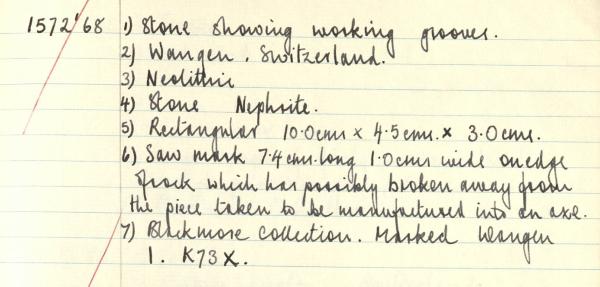 1572'68 1) Stone showing working grooves.
2) Wangen. Switzerland.
3) Neolithic
4) Stone Nephrite.
5) Rectangular 10.0cms x 4.5cms. x 3.0cms.
6) Saw mark 7.4cms. long 1.0cms wide on edge
of rock which has possibly broken away from
the piece taken to be manufactured into an axe.
7) Blackmore Collection. Marked Wangen
1. K73X.